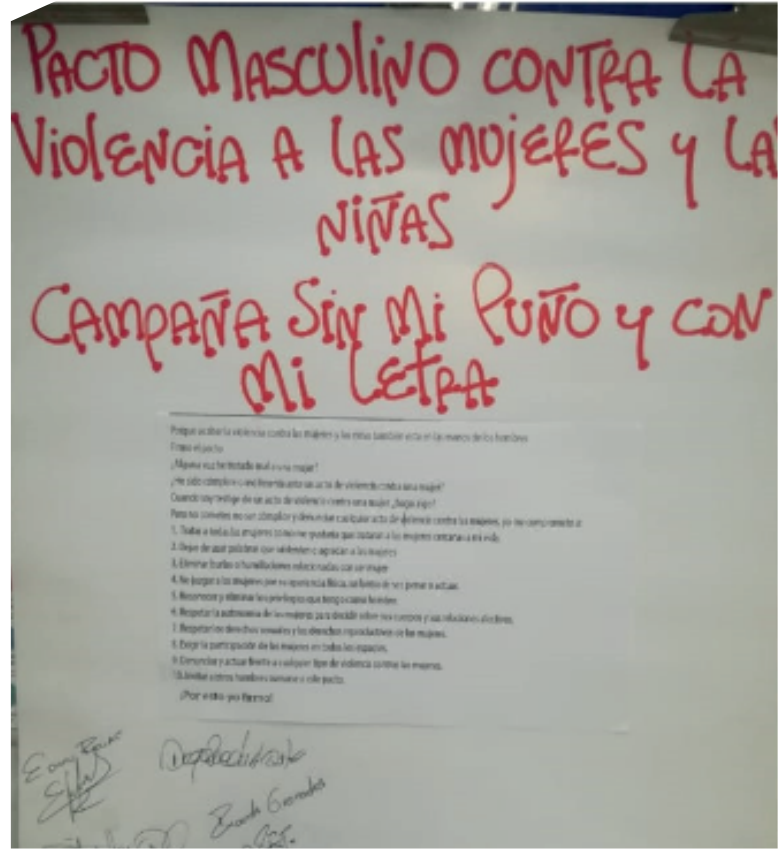 PACTO MASCULINO CONTRA LA
VIOLENCIA A LAS MUJERES Y LA
NIÑAS
CAMPAÑA SIN MI PUÑO Y CON
MI LETRA
Porque acabar la violencia contra las mujeres y las niñas también está en las manos de los hombres
Firmo el pacto
¿Alguna vez he tratado mal a una mujer?
¿He sido cómplice o indiferente ante un acto de violencia contra una mujer?
Cuando soy testigo de un acto de violencia contra una mujer ¿hago algo?
Para no cometer, no ser cómplice y denunciar cualquier acto de violencia contra las mujeres, yo me comprometo a:
1. Tratar a todas las mujeres como me gustaría que trataran a las mujeres cercanas a mi vida.
2. Dejar de usar palabras que violenten o agredan a las mujeres
3. Eliminar burlas o humillaciones relacionadas con ser mujer
4. No juzgar a las mujeres por su apariencia física, su forma de ser, pensar o actuar.
5. Reconocer y eliminar los privilegios que tengo como hombre
6. Respetar la autonomía de las mujeres para decidir sobre sus cuerpos y sus relaciones afectivas.
7. Respetar los derechos sexuales y los derechos reproductivos de las mujeres.
8. Exigir la participación de las mujeres en todos los espacios.
9. Denunciar y actuar frente a cualquier tipo de violencia contra las mujeres.
10. Invitar a otros hombres a sumarse a este pacto.
¡Por esto yo firmo!